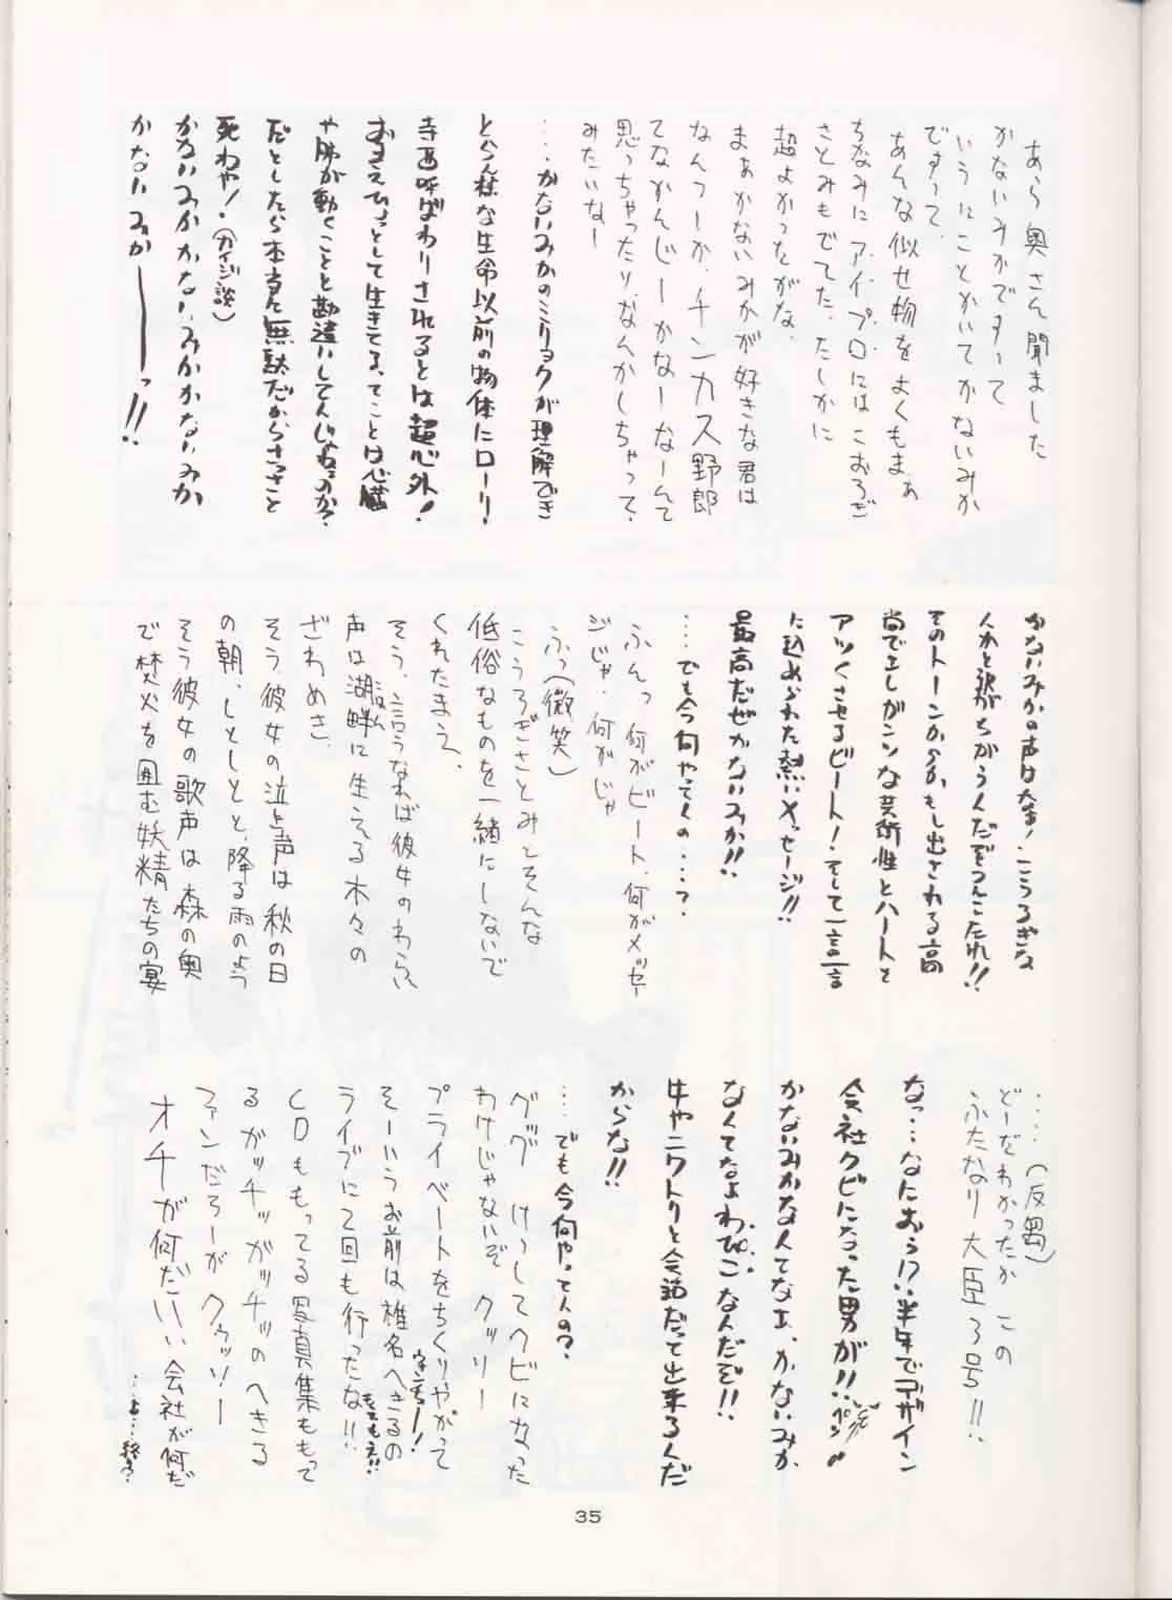 あら奥さん聞ました
かないみかですって
いうにことかいてかないみか
ですって、
あんな似せ物をよくもまぁ
ちなみにアイ・プロにはこおろぎ
さとみもでてた、たしかに
超よかったがな、
まぁかないみかが好きな君は
なんつーか、チンカス野郎
てなかんじーかなーなーんて
思っちゃったり、なんかしちゃって、
みたいなー
…かないみかのミリョクが理解でき
とらん様な生命以前の物体にローリー
呼ばわりされるとは超心外!
おまえひょっとして生きてる、てことは心臓
や肺が動くことと勘違いしてんじゃねえのか?
だとしたら本当に無駄だからさっさと
死わや!(カイジ談)
かないみかかないみかかないみか
かないみかーーっ!!
かないみかの声は
人かと訳がちがうんだぞうんこたれ!!
そのトーンからかもし出される高
尚でエレガンンな芸術性とハートを
アツくさせるビート!そして一言一言
に込められた熱いメッセージ!!
最高だぜかないみか!!
…でも今何やってんの…?
ふんっ 何がビート、何がメッセー
ジじゃ、何がじゃ
ふっ(微笑)
こうろぎさとみをそんな
低俗なものを一緒にしないで
くれたまえ、
そう、言うなれば彼女のわらい
声は湖畔に生える木々の
こはん
ざわめき、
そう彼女の泣き声は秋の日
の朝、しとしとと、降る雨のよう
そう彼女の歌声は森の奥
で焚火を囲む妖精たちの宴
……(反芻)
どーだわかったか この
ふたなり大臣3号!!
なっ…なにおぅ!?半年でデザイン
会社クビになった男が!!
かないみかなんてなェ、かないみか
なくてなぁわぴこなんだぞ!!
牛やニワトリと会話だって出来るんだ
からな!!
…でも今何やってんの?
ググ けっしてクビになった
わけじゃないぞ クッソー
プライベートをちくりやがって
そーいうお前は椎名へきるの
ライブに2回も行ったな!!
CDももってる写真集ももって
るガッチッガッチッのへきる
ファンだろーが クゥッソー
オチが何だいい会社が何だ
…よ…終る?
35